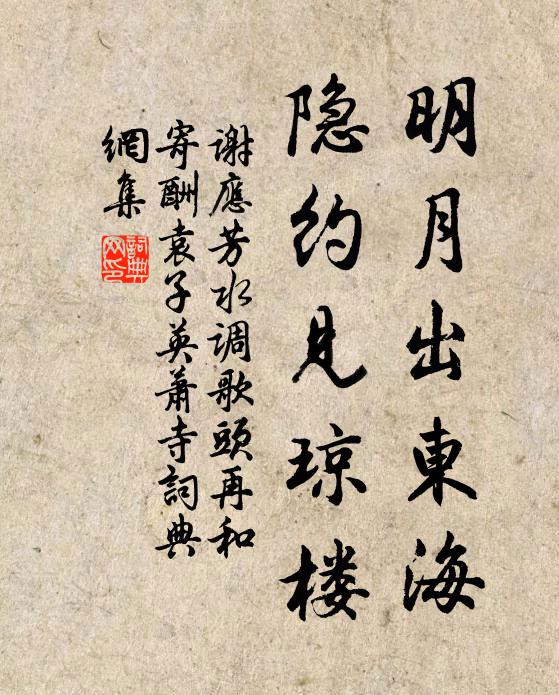 明月出東海
隐约见琼楼
谢應芳水调歌頭再和
寄酬袁子英萧寺詞典
網集
詞典
网印